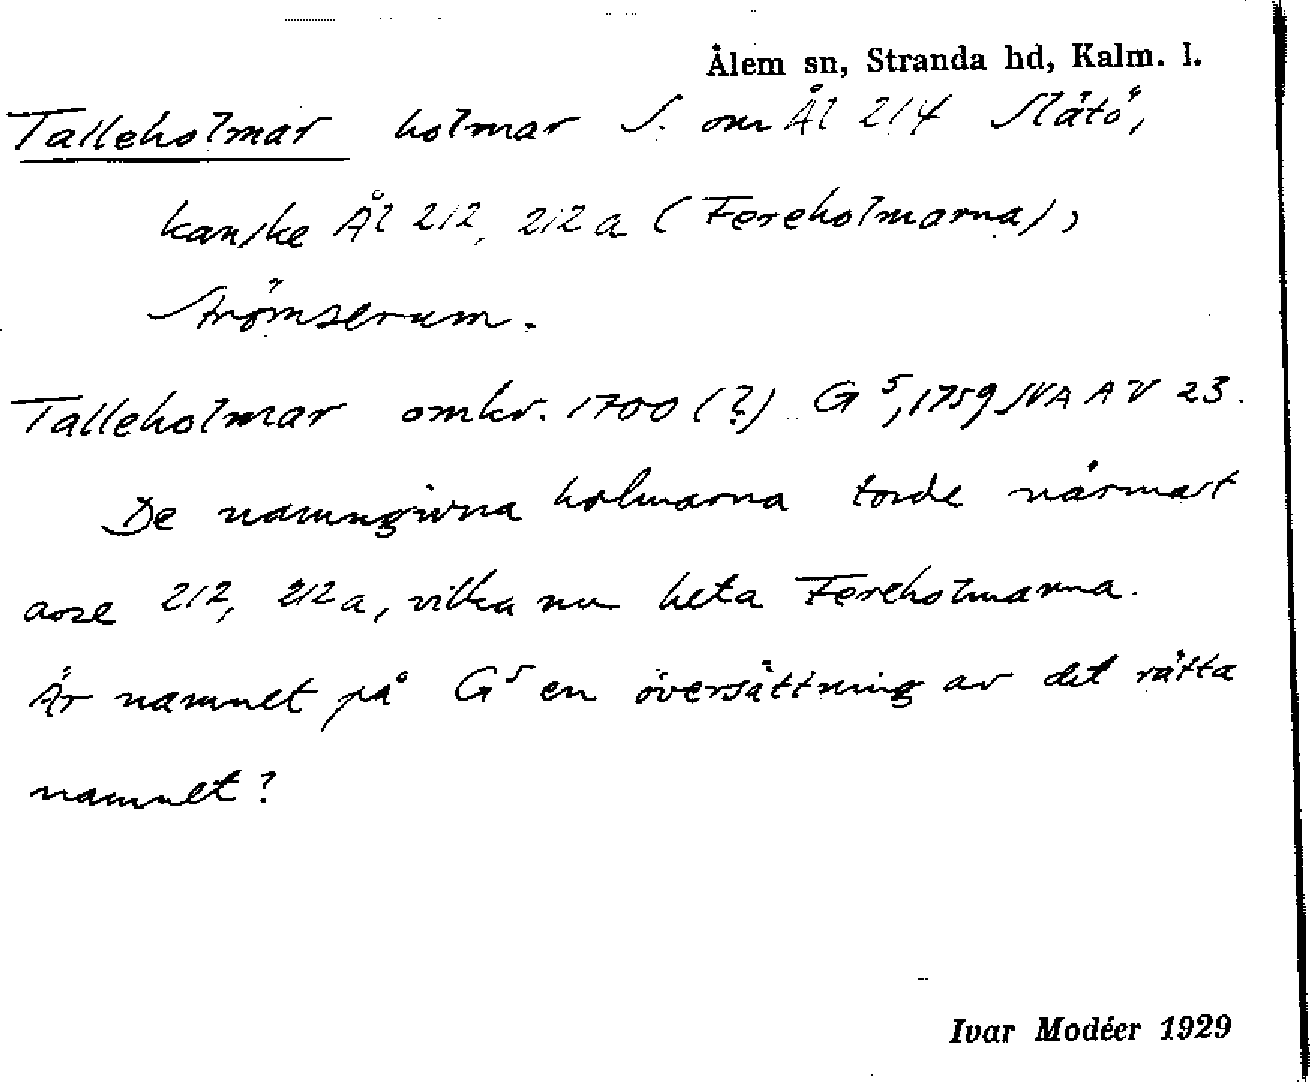 Ålem sn, Stranda hd, Kalm. l.
Talleholmar holmar S. om Ål 214 Slätö,
kanske Ål 212, 212a (Fereholmarna),
Strömserum.
Talleholmar omkr. 1700 (?) G⁵, 1759 SVA A V 23.
De namngivna holmarna torde närmast
avse 212, 212a, vilka nu heta Fereholmarna.
Är namnet på G⁵ en översättning av det rätta
namnet?
Ivar Modéer 1929